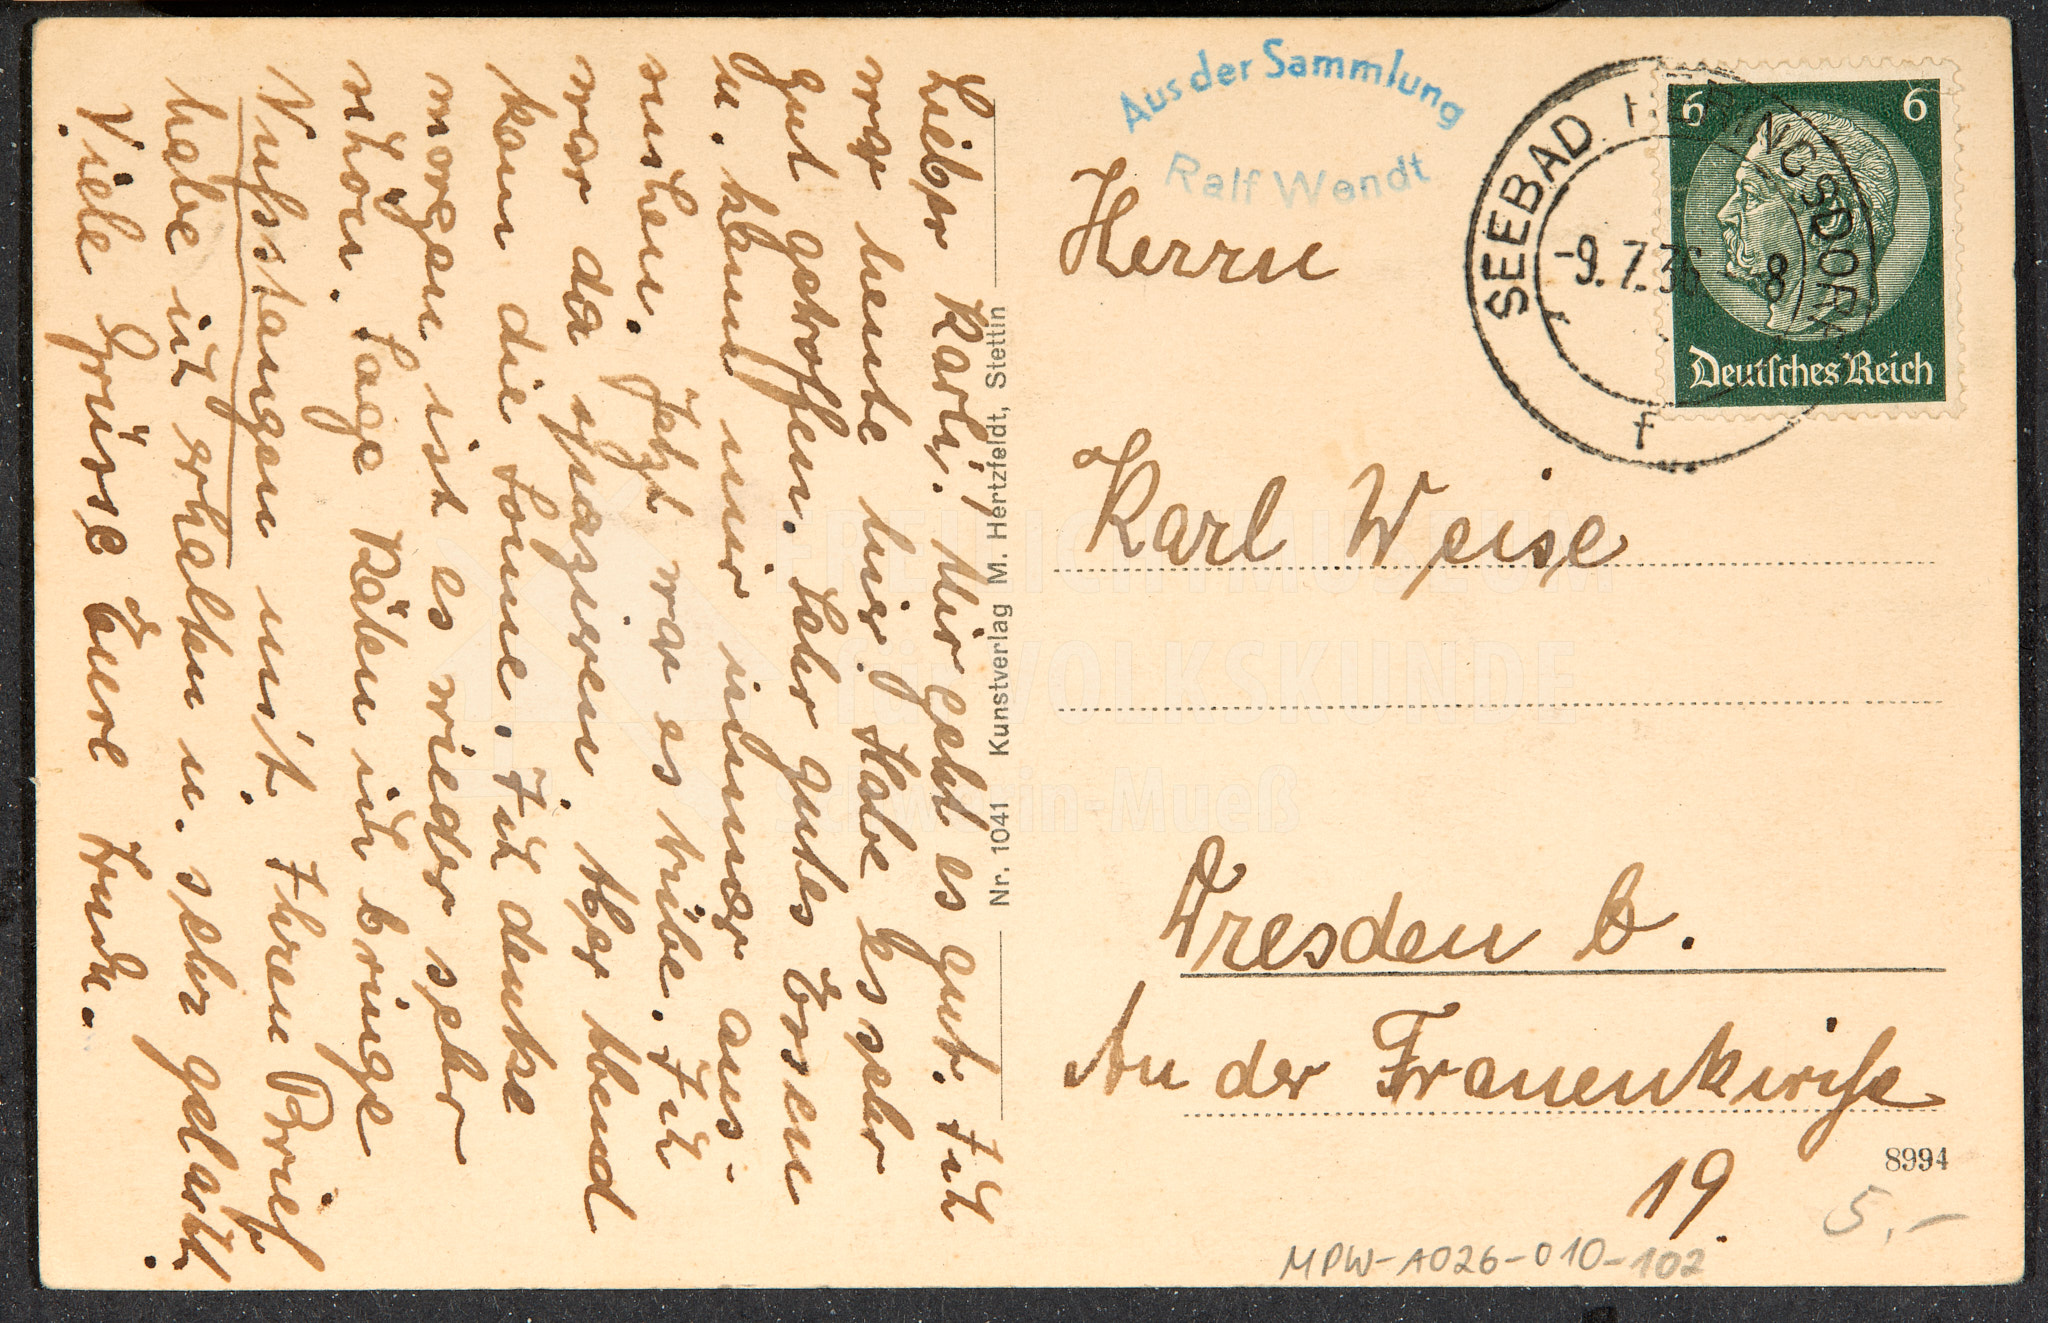 Lieber Karli! Mir geht es gut. Ich
war heute hier. Habe es sehr
gut getroffen. Sehr gutes Essen
u. kann mir immer aus-
suchen. Jetzt war es trübe. Ich
war da spazieren. Aber Abend
kam die Sonne. Ich denke
morgen ist es wieder sehr
schön. Sage Käten ich bringe
Nußstangen mit. Ihren Brief
habe ich erhalten u. sehr gelacht.
Viele Grüsse Eure
Nr. 1041 Kunstverlag M. Hertzfeldt, Stettin
Aus der Sammlung
Ralf Wendt
SEEBAD HERINGSDORF
-9.7.36. 8
f
6 6
Deutsches Reich
Herrn
Karl Weise
Dresden
An der Frauenkirche
19.
8994
5,-
MPW-A026-010-102
FREILICHTMUSEUM
für VOLKSKUNDE
Schwerin-Mueß